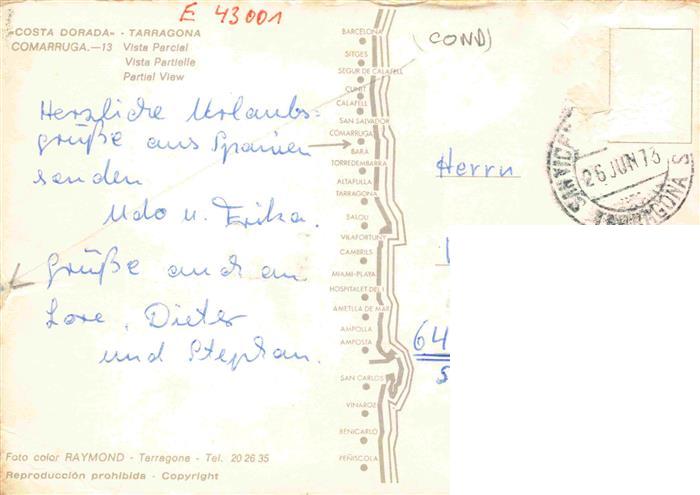 E 43001
"COSTA DORADA" - TARRAGONA
COMARRUGA.—13 Vista Parcial
Vista Partielle
Partial View
Herzliche Urlaubs=
grüße aus Spanien
senden
Udo u. Erika.
Grüße auch an
Lore, Dieter
und Stephan.
Foto color RAYMOND - Tarragona - Tel. 20 26 35
Reproducción prohibida - Copyright
BARCELONA
SITGES
SEGUR DE CALAFELL
CUNIT
CALAFELL
SAN SALVADOR
COMARRUGA
BARÁ
TORREDEMBARRA
ALTAFULLA
TARRAGONA
SALOU
VILAFORTUNY
CAMBRILS
MIAMI-PLAYA
HOSPITALET DEL I.
AMETLLA DE MAR
AMPOLLA
AMPOSTA
SAN CARLOS
VINAROZ
BENICARLO
PEÑISCOLA
(COND)
Herrn
64
26 JUN 73
TARRAGONA